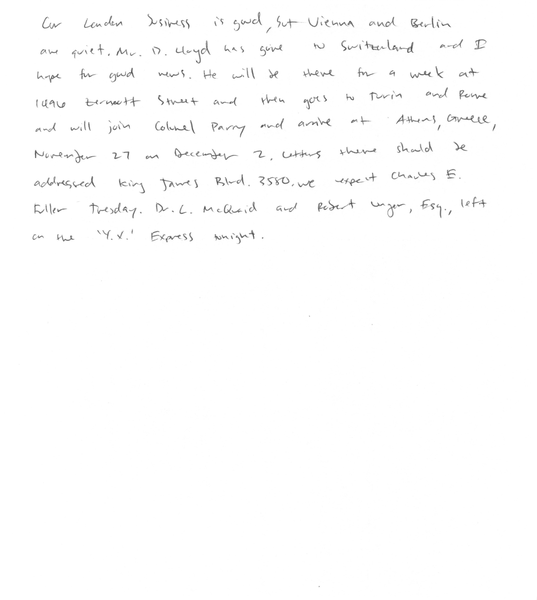 Our London business is good, but Vienna and Berlin
are quiet. Mr. D. Lloyd has gone to Switzerland and I
hope for good news. He will be there for a week at
1496 Zermott Street and then goes to Turin and Rome
and will join Colonel Parry and arrive at Athens, Greece,
November 27 or December 2. Letters there should be
addressed King James Blvd. 3580. We expect Charles E.
Fuller Tuesday. Dr. L. McQuaid and Robert Unger, Esq., left
on the 'Y.X.' Express tonight.